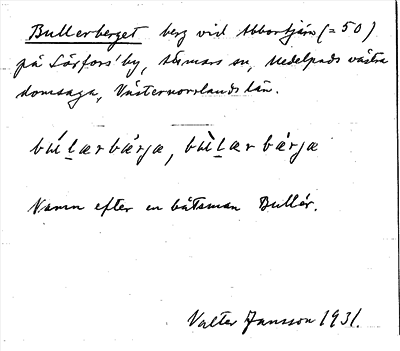 Bullerberget berg vid Abbortjärn (= 50)
på Lörfors' by, Attmars sn, Medelpads västra
domsaga, Västernorrlands län.
bu̇́lærbärja, bu̇̀lærbärja
Namn efter en båtsman Bullér.
Valter Jansson 1931.